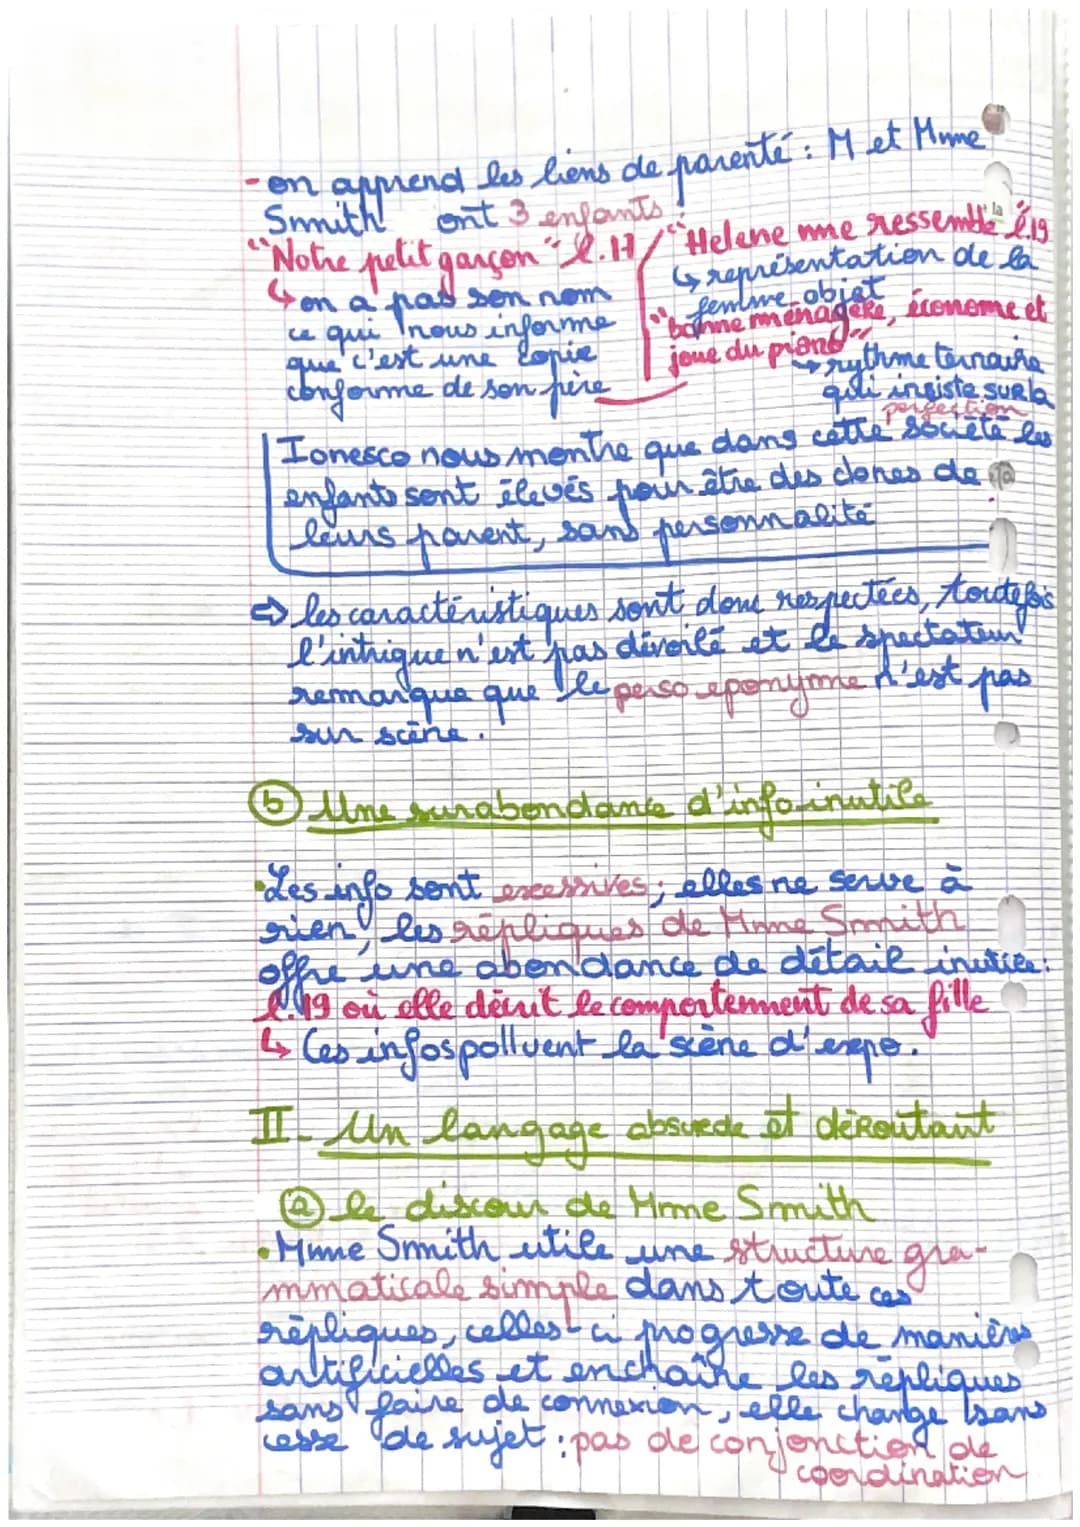 - on apprend les liens de parenté : M et Mme
Smith ont 3 enfants
"Notre petit garçon" l.17
↳ on a pas son nom
ce qui nous informe
que c'est une copie
conforme de son père
"Helene me ressemble" l.19
↳ représentation de la
femme objet
"bonne ménagère, économe et
joue du piano"
→ rythme ternaire
qui insiste sur la
perfection
la
Ionesco nous montre que dans cette société les
enfants sont élevés pour être des clones de
leurs parent, sans personnalité
⇒ les caractéristiques sont donc respectées, toutefois
l'intrigue n'est pas dévoilé et le spectateur
remarque que le perso eponyme n'est pas
sur scène.
ⓑ Une surabondance d'info inutile
• Les info sont excessives ; elles ne serve à
rien, les répliques de Mme Smith
offre une abondance de détail inutile :
l.19 où elle décrit le comportement de sa fille
↳ Ces infos polluent la scène d'expo.
II - Un langage absurde et déroutant
ⓐ le discour de Mme Smith
• Mme Smith utile une structure gra-
mmaticale simple dans toute ces
répliques, celles-ci progresse de manières
artificielles et enchaîne les répliques
sans faire de connexion, elle change sans
cesse de sujet : pas de conjonction de
coordination